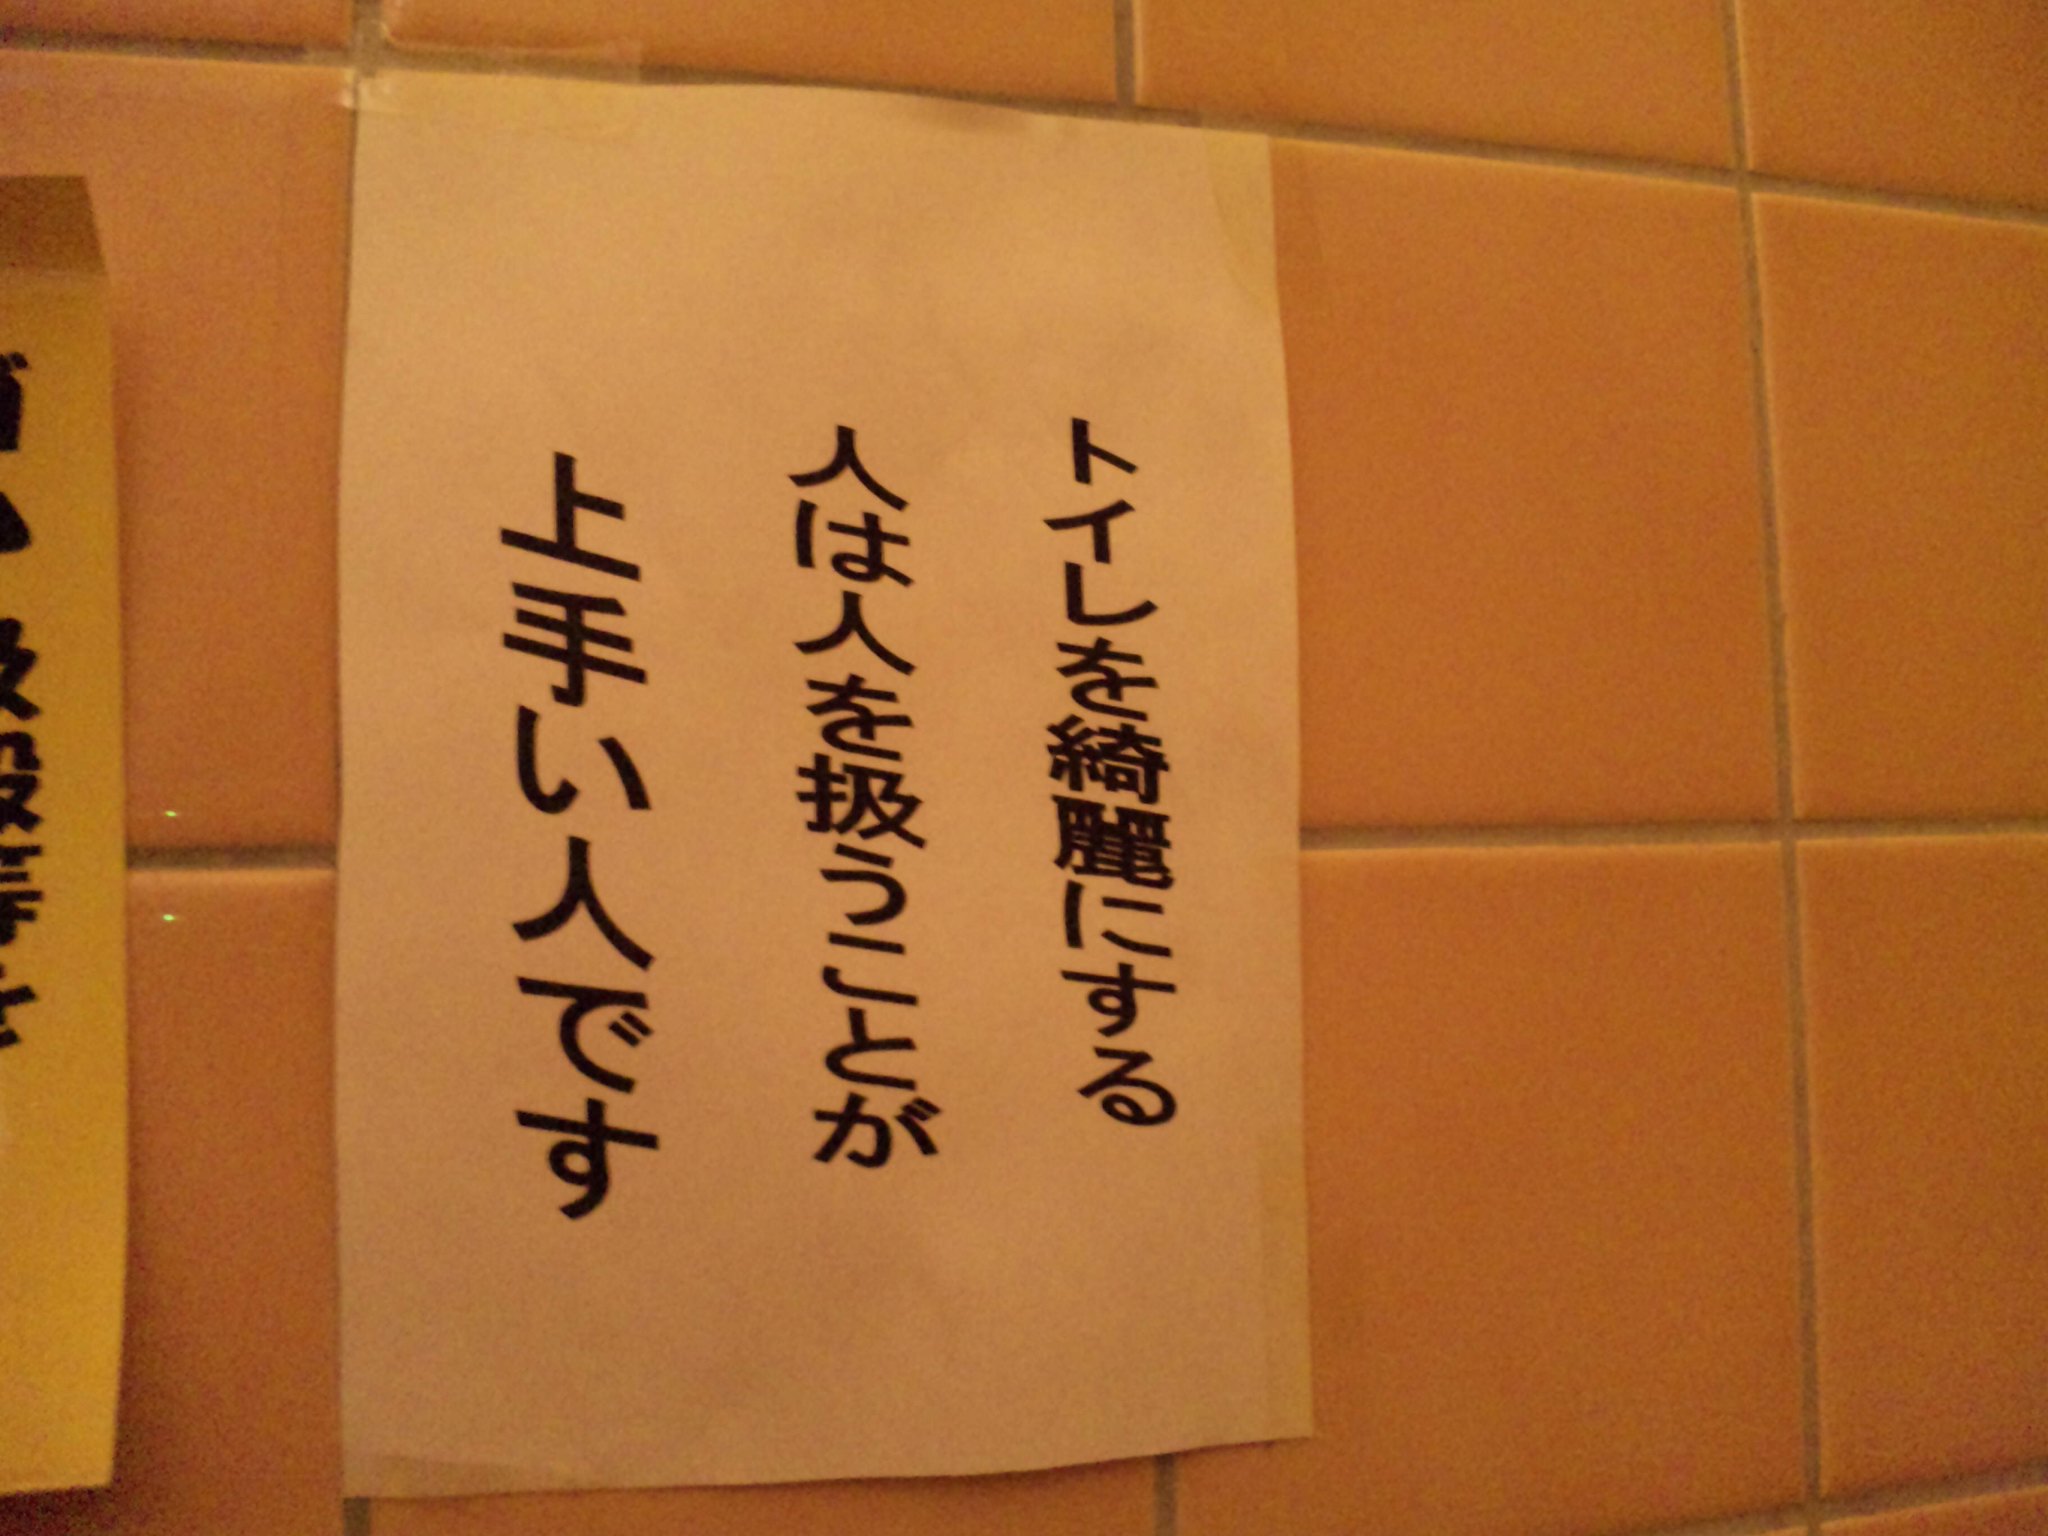 トイレを綺麗にする
人は人を扱うことが
上手い人です